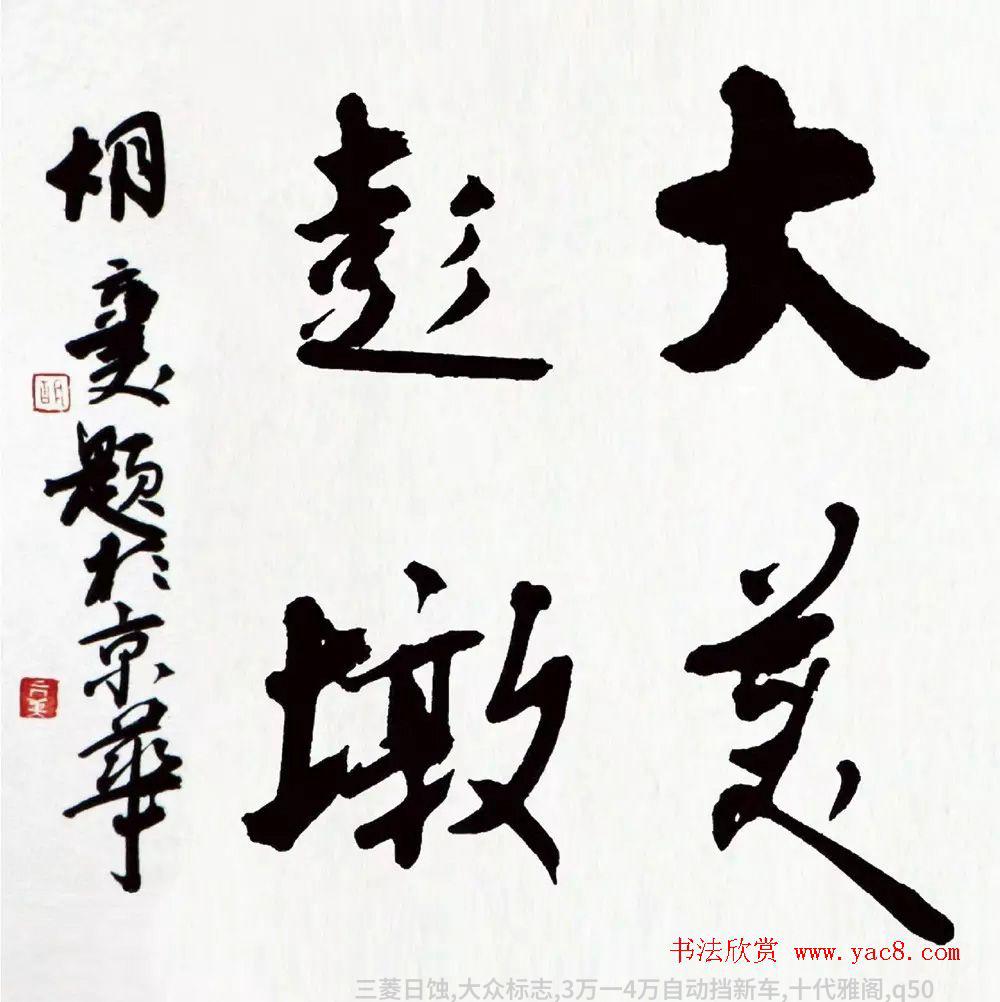 大美
彭墩
胡 题於京華
书法欣赏 www.yac8.com
三菱日蚀,大众标志,3万一4万自动挡新车,十代雅阁,q50